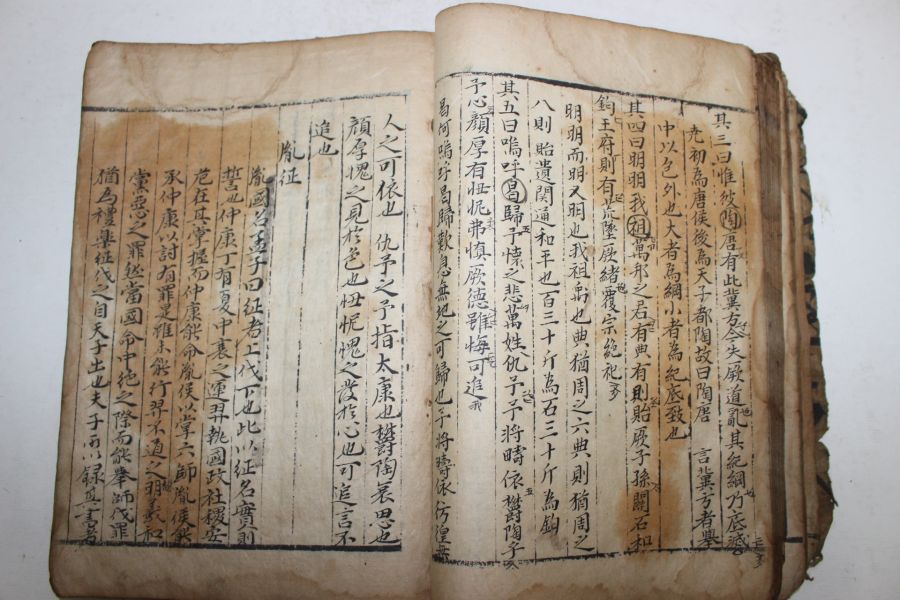 其三曰惟彼陶唐有此冀方今失厥道亂其紀綱乃底滅
堯初為唐侯後為天子都陶故曰陶唐 言冀方者舉
中以包外也大者為綱小者為紀底致也
其四曰明明我祖萬邦之君有典有則貽厥子孫關石和
鈞王府則有荒墜厥緒覆宗絕祀
明明而明又明也我祖禹也典猶周之六典則猶周之
八則貽遺関通和平也百三十斤為石三十斤為鈞
其五曰嗚呼曷歸予懷之悲萬姓仇予予將疇依鬱陶乎
予心顏厚有忸怩弗慎厥德雖悔可追
曷何嗚呼曷歸歎息無地之可歸也予將疇依彷徨無
人之可依也 仇予之予指太康也鬱陶哀思也
顏厚愧之見於色也忸怩愧之發於心也可追言不
追也
胤征
胤國名孟子曰征者上伐下也此以征名實則
誓也仲康丁有夏中衰之運羿執國政社稷安
危在其掌握而仲康能命胤侯以掌六師胤侯能
承仲康以討有罪是雖未能行羿不道之明義和
黨惡之罪然當國命中絕之際而能舉師伐罪
猶為禮樂征伐之自天子出也夫子所以錄其書者